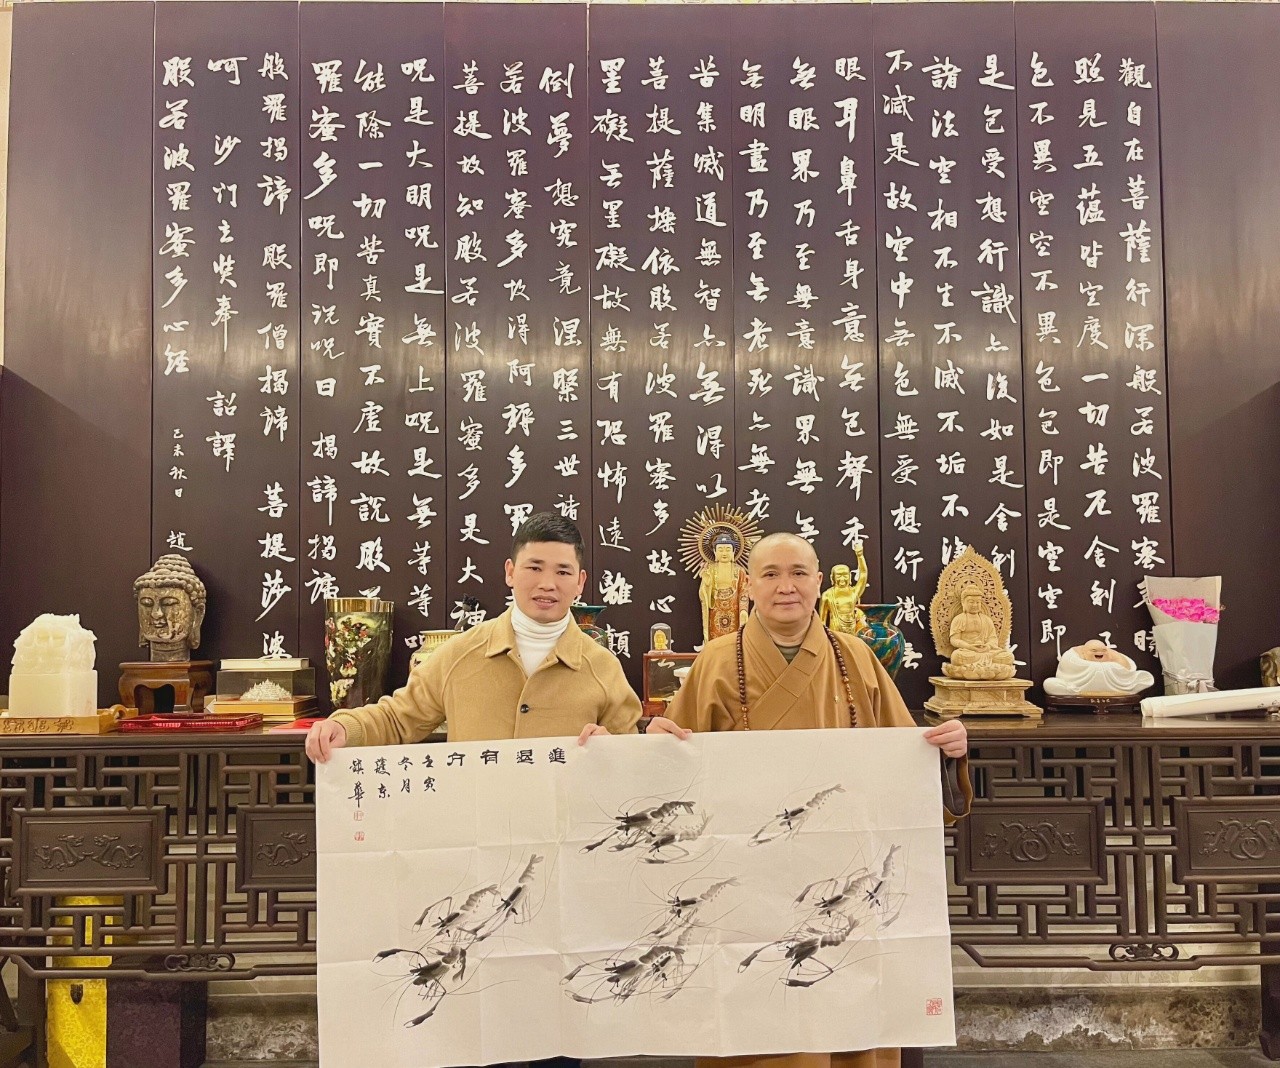 觀自在菩薩行深般若波羅蜜多時
照見五蘊皆空度一切苦厄舍利子
色不異空空不異色色即是空空即
是色受想行識亦復如是舍利
諸法空相不生不滅不垢不淨
不減是故空中無色無受想行識無
眼耳鼻舌身意無色聲香
無眼界乃至無意識界無無
無明盡乃至無老死亦無老
苦集滅道無智亦無得以
菩提薩埵依般若波羅蜜多故心
罣礙無罣礙故無有恐怖遠離顛
倒夢想究竟涅槃三世諸
若波羅蜜多故得阿耨多羅
菩提故知般若波羅蜜多是大神
呪是大明呪是無上呪是無等等呪
能除一切苦真實不虛故說般若
羅蜜多呪即說呪曰 揭諦揭諦
般羅揭諦 般羅僧揭諦 菩提莎婆
呵 沙門玄奘奉 詔譯
般若波羅蜜多心經 己未秋日 趙
進退有方
壬寅
冬月